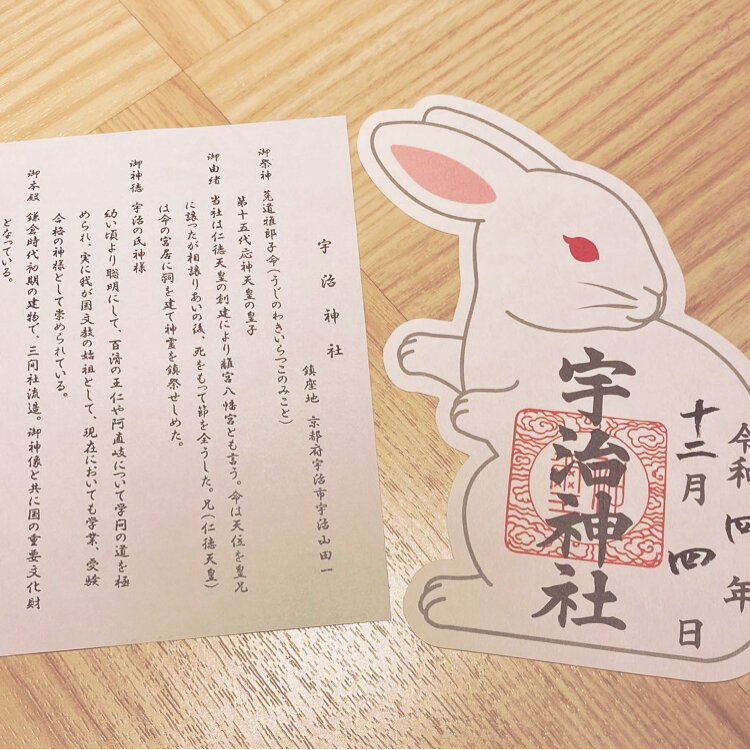 宇治神社
鎮座地 京都府宇治市宇治山田一
御祭神 莵道稚郎子命(うじのわきいらつこのみこと)
第十五代応神天皇の皇子
御由緒 当社は仁徳天皇の創建により離宮八幡宮とも言う。命は天位を皇兄
に譲つたが相譲りあいの後、死をもって節を全うした。兄(仁徳天皇)
は命の宮居に祠を建て神霊を鎮祭せしめた。
御神徳 宇治の氏神様
幼い頃より聡明にして、百済の王仁や阿直岐について学問の道を極
められ、実に我が国文教の始祖として、現在においても学業、受験
合格の神様として崇められている。
御本殿 鎌倉時代初期の建物で、三間社流造。御神像と共に国の重要文化財
となっている。
令和四年
十二月四日
宇治神社